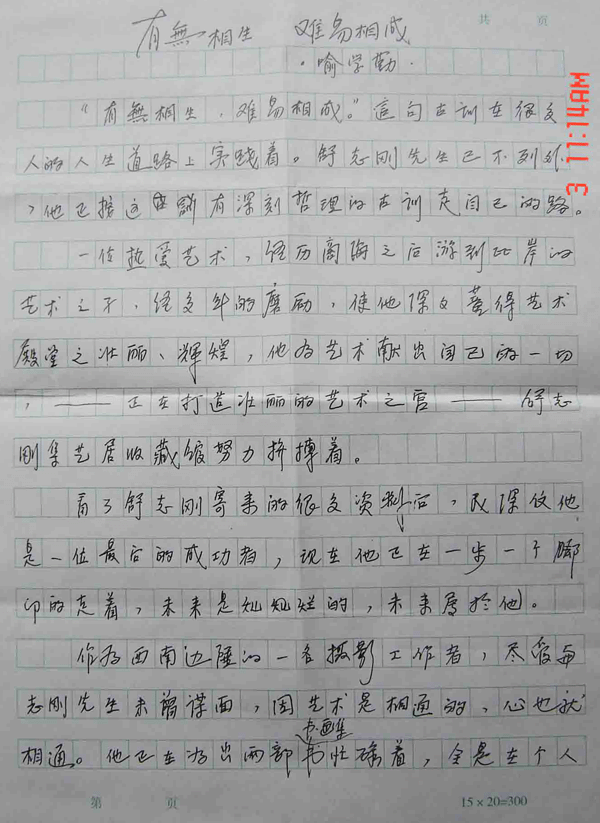 共 页
有無相生 难易相成
·喻学勤·
“有無相生,难易相成。”這句古训在很多
人的人生道路上实践着。舒志刚先生已不列外
,他正按这 有深刻哲理的古训走自己的路。
一位热爱艺术,经历商海之后游到此岸的
艺术之子,经多年的磨励,使他深知 得艺术
殿堂之壮丽、辉煌,他为艺术献出自己的一切
,——正在打造壮丽的艺术之宫——舒志
刚集艺居收藏馆努力拚搏着。
看了舒志刚寄来的很多资料后,我深 他
是一位最后的成功者,现在他正在一步一个脚
印的走着,未来是灿灿烂的,未来属於他。
作为西南边陲的一名摄影工作者,尽管与
志刚先生未 谋面,因艺术是相通的,心也就
书画集
相通。他正在为出两部书忙碌着,全是在个人
第 页
15×20=300
3 11:14AM